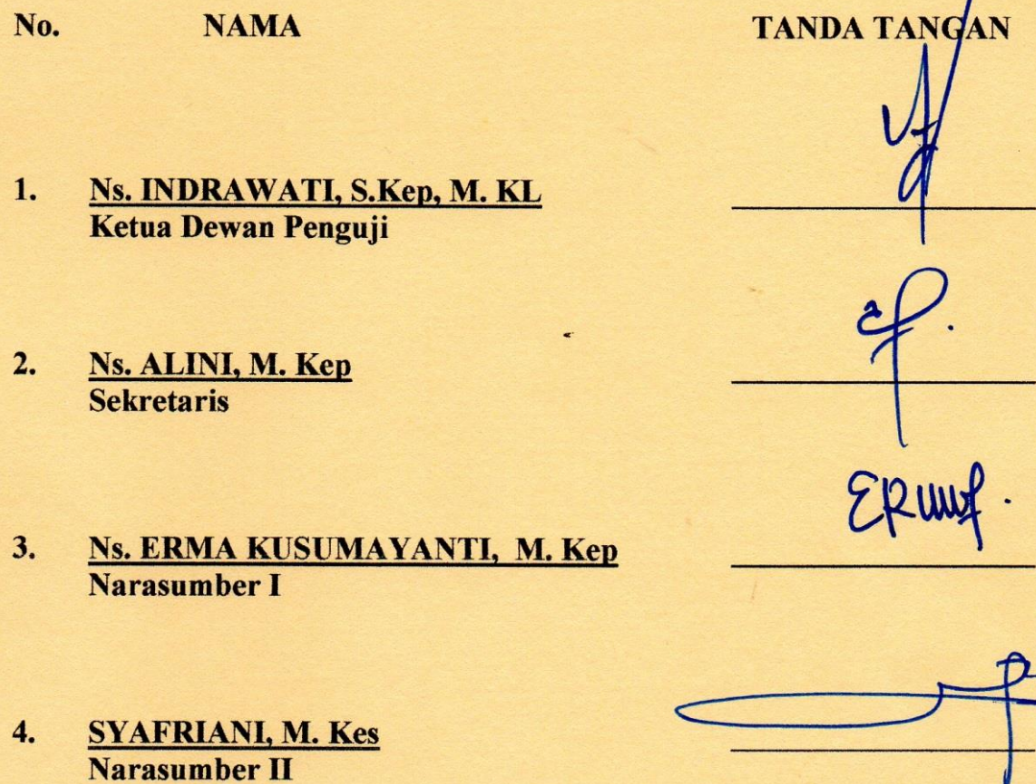 No. NAMA TANDA TANGAN
1. Ns. INDRAWATI, S.Kep, M. KL
Ketua Dewan Penguji
2. Ns. ALINI, M. Kep
Sekretaris
3. Ns. ERMA KUSUMAYANTI, M. Kep
Narasumber I
4. SYAFRIANI, M. Kes
Narasumber II